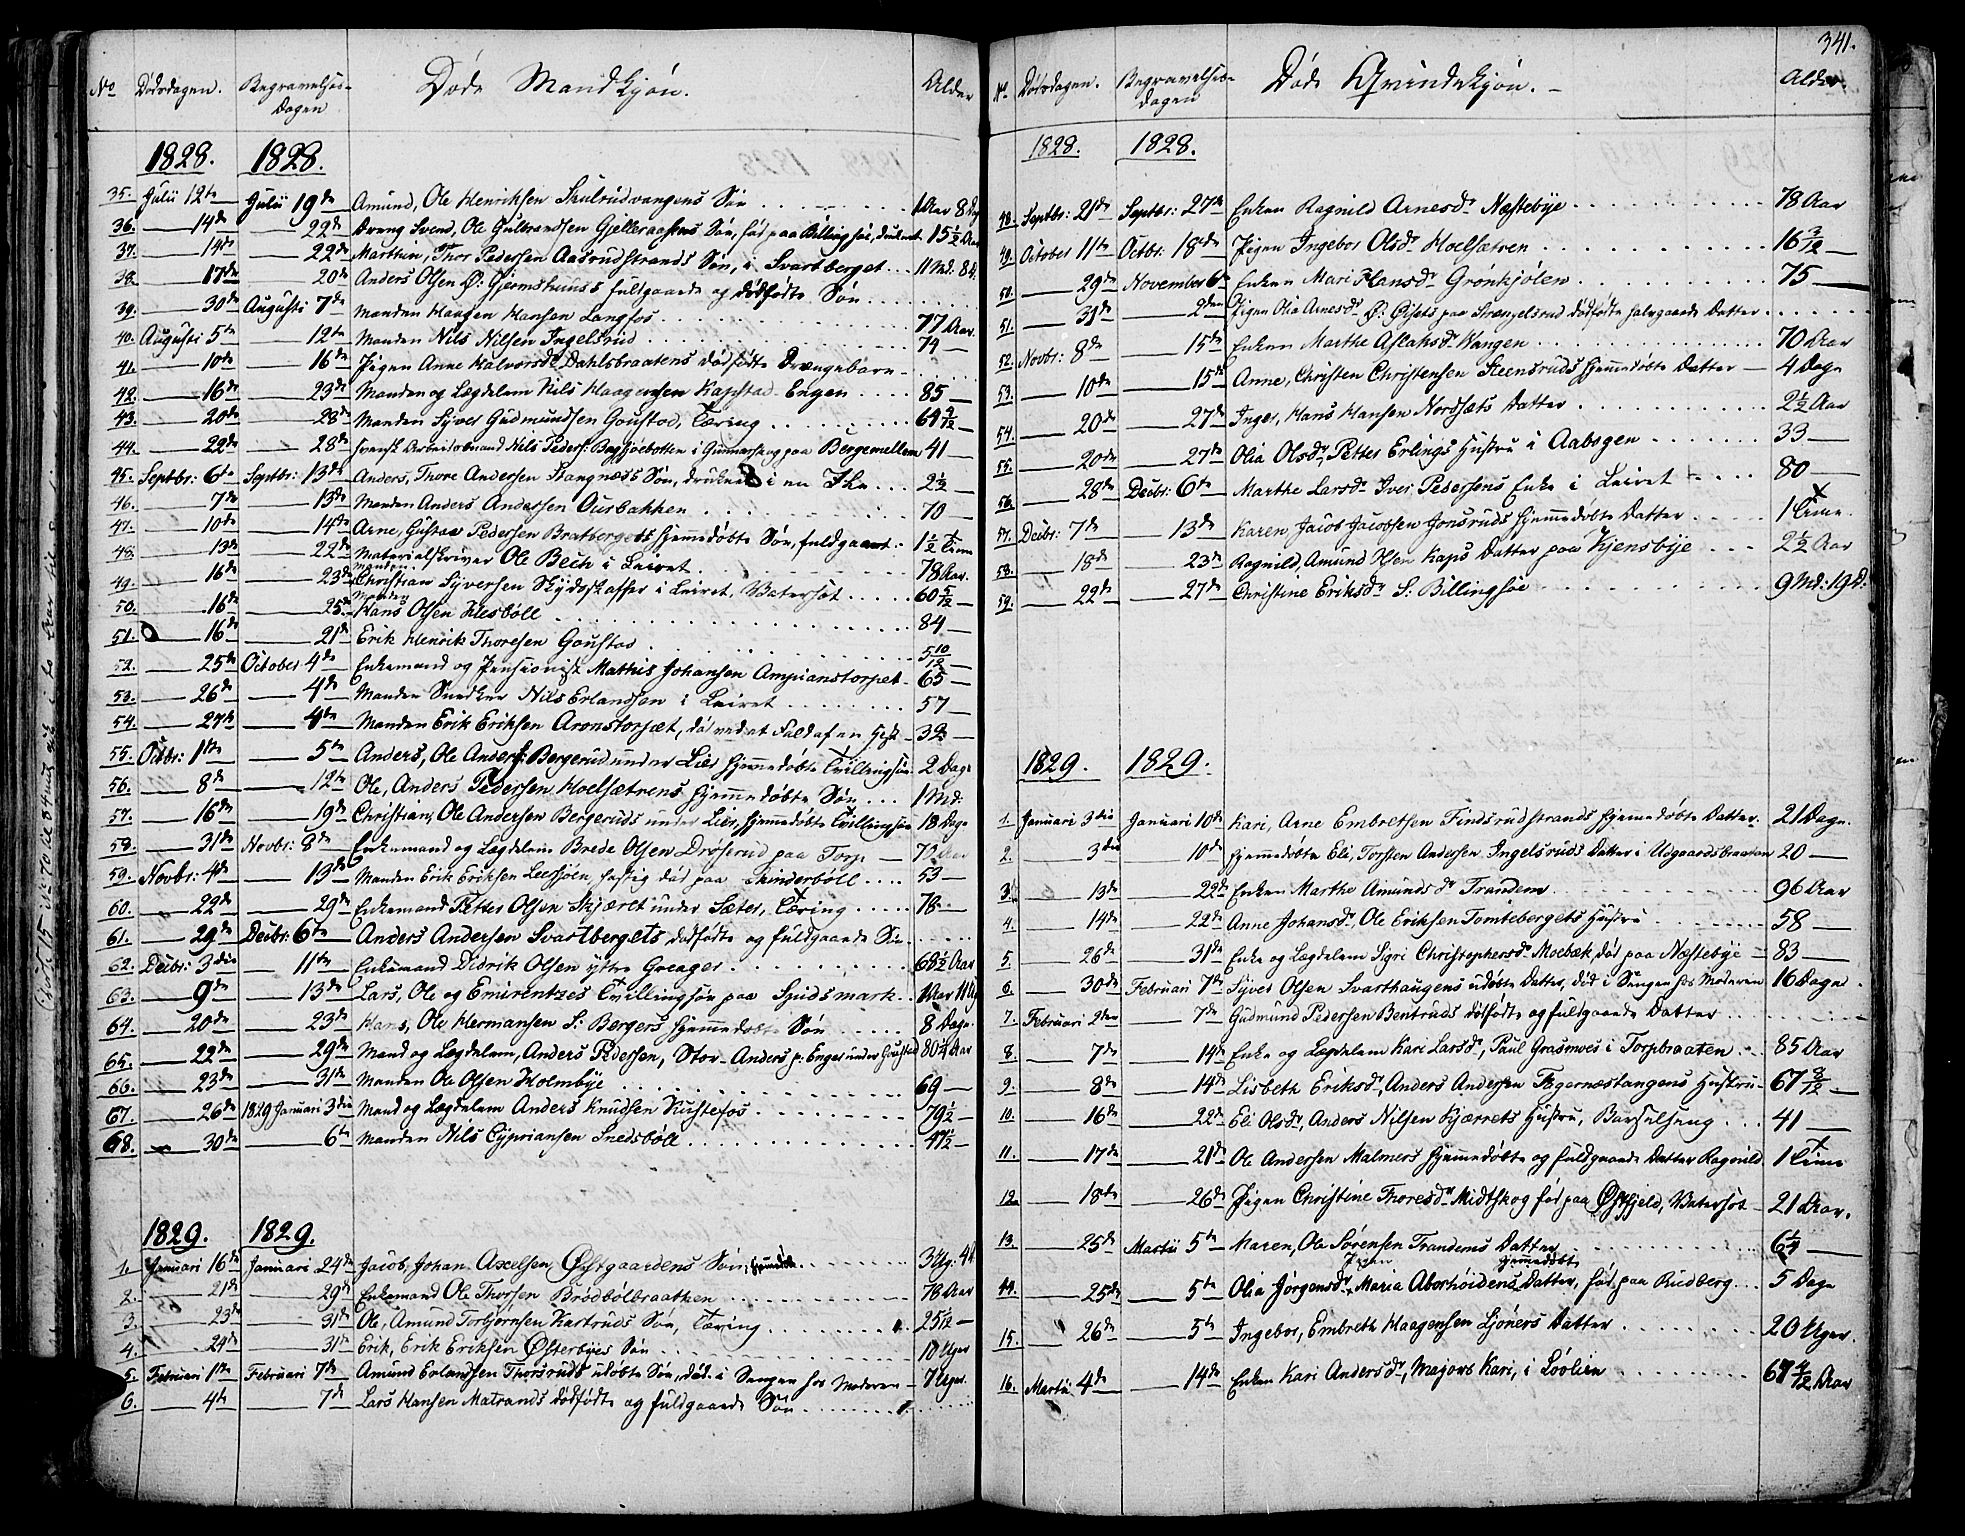 No Dødsdagen. Begravelses-Dagen Døde Mandkjøn. Alder
1828. 1828.
35. Julii 12te Julii 19de Amund, Ole Henriksen Skulrudvangens Søn 1 Aar 8 Dg
36. 14de 22de Dreng Svend, Ole Gulbrandsen Gjelleraasens Søn, fød paa Billingsøe, druknet 15 1/2 Aar
37. 14de 22de Marthin, Thor Pedersen Aasrudstrands Søn, i Svartberget 11 Md: 8 d.
38. 17de 20de Anders Olsen Ø: Gjermshuuss fuldgaarde og dødfødte Søn
39. 30de Augusti 7de Manden Haagen Hansen Langfos 77 Aar
40. Augusti 5te 12te Manden Nils Nilsen Ingelsrud 74
41. 10de 16de Pigen Anne Halvorsdr Dahlsbraatens dødfødte Drængebarn
42. 16de 23de Manden og Lægdelem Nils Haagensen Kapstad Engen 85
43. 20de 28de Manden Syver Gudmundsen Goustad, Tæring 64
44. 22de 28de Svensk Arbeidsmand Nils Peders: i Gunnarskog paa Bergemellem 41
45. Septbr: 6te Septbr: 13de Anders, Thore Andersen Stangnæss Søn, druknede i en 2 1/2
46. 7de 13de Manden Anders Andersen Ousbakken 70
47. 10de 14de Arne, Gustav Pedersen Bratbergets hjemmedøbte Søn, fuldgaaet 1 1/2 Time
48. 13de 22de Materialskriver Ole Bech i Leiret 78 Aar.
49. 16de 23de Manden Christian Syversen Skydsskaffer i Leiret, Vatersot 60
50. 16de 25de Manden Hans Olsen Hesbøll 84
51. 16de 21de Erik Henrik Thoresen Goustad 5 10/12
52. 25de October 4de Enkemand og Pensionist Mathis Johansen Ampianstorpet 65
53. 26de 4de Manden Snedker Nils Erlandsen i Leiret 57
54. 27de 4de Manden Erik Eriksen Aronstorpet, død ved et Fald af en Hest
55. Octbr: 1ste 5te Anders, Ole Anders: Bergerud under Lier hjemmedøbte Tvillingsøn 2 Dage
56. 8de 12te Ole, Anders Pedersen Hoelsætrens hjemmedøbte Søn 1 Md:
57. 16de 19de Christian, Ole Andersen Bergeruds under Lier, hjemmedøbte Tvillingsøn 18 Dage
58. 31te Novbr: 8de Enkemand og Lægdelem Brede Olsen Drøserud paa Torp
59. Novbr: 4de 13de Manden Erik Eriksen Leersjøen hastig død paa Skinderbøll 53
60. 22de 29de Enkemand Petter Olsen Skjæret under Sæter, Tæring 78
61. 29de Decbr: 6te Anders Andersen Svartbergets dødfødte og fuldgaarde Søn
62. Decbr: 3die 11te Enkemand Didrik Olsen yttre Greager 68 1/2 Aar
63. 9de 13de Lars, Ole og Emirentzes Tvillingsøn paa Spidsmark
64. 20de 23de Hans, Ole Hermansen S: Bergers hjemmedøbte Søn 8 Dage
65. 22de 29de Mand og Lægdelem, Anders Pedersen, Stor-Anders p: Enger under Goustad 80 1/4 Aar
66. 23de 31te Manden Ole Olsen Holmbye 69
67. 26de 1829 Januari 3die Mand og Lægdelem Anders Knudsen Rustefos 79 1/2
68. 30de 6te Manden Nils Cypriansen Snedsbøll 47 1/2
1829. 1829.
1. Januari 16de Januari 24de Jacob, Johan Axelsen Østgaardens Søn, hjemdøbt
2. 21de 29de Enkemand Ole Thorsen Brødbølbraathen 78 Aar
3. 23de 31te Ole, Amund Torbjørnsen Kastruds Søn, Tæring
4. 24de 31te Erik, Erik Eriksen Østerbyes Søn 10 Uger
5. Februari 1ste Februari 7de Amund Erlandsen Thorsruds udøbte Søn, død i Sengen hos Moderen 7 Uger.
6. 4de 7de Lars Hansen Matrands dødfødte og fuldgaarde Søn
341.
No. Dødsdagen. Begravelses-dagen Døde Qvindekjøn. Alder.
1828. 1828.
48. Septbr: 21de Septbr: 27de Enken Ragnild Arnesdr Næstebye 78 Aar
49. October 11te Octbr: 18de Pigen Ingebor Olsdr Hoelsætren 16 3/12
50. 29de November 6te Enken Mari Hansdr Grønkjølen 75
51. 31te 2den Pigen Olia Arnesdr paa Strængelsrud dødfødte halvgaarde Datter
52. Novbr: 8de 15de Enken Marthe Aslaksdr Vangen 70 Aar
53. 10de 15de Anne, Christen Christensen Steensruds hjemmedøbte Datter 4 Dage
54. 20de 27de Inger, Hans Hansen Nordsæts Datter 2 1/2 Aar
55. 20de 27de Olia Olsdr, Petter Erlings Hustru i Aabogen 33
56. 28de Decbr: 6te Marthe Larsdr Iver Pedersens Enke i Leiret 80
57. Decbr: 7de 13de Karen Jacob Jacobsen Jonsruds hjemmedøbte Datter 1 Time.
58. 18de 23de Ragnild, Amund Olsen Kaps Datter paa Kjensbye 2 1/2 Aar
59. 22de 27de Christine Eriksdr S: Billingsøe 9 Md: 19 D.
1829. 1829.
1. Januari 3die Januari 10de Kari, Arne Embretsen Findsrudstrands hjemmedøbte Datter. 21 Dage.
2. 3die 10de hjemmedøbte Eli, Torsten Andersen Ingelsruds Datter i Udgaardsbraaten 20
3. 13de 22de Enken Marthe Amundsdr Trandem 96 Aar
4. 14de 22de Anne Johansdr, Ole Eriksen Tomtebergets Hustru 58
5. 26de 31te Enke og Lægdelem Sigri Christophersdr Moebæk, død paa Næstebye 83
6. 30de Februari 7de Syver Olsen Svarthaugens udøbte Datter, død i Sengen hos Moderen 16 Dage
7. Februari 2den 7de Gudmund Pedersen Bentruds dødfødte og fuldgaarde Datter
8. 7de 14de Enke og Lægdelem Kari Larsdr, Paul Grasmoes i Torpbraaten 85 Aar
9. 8de 14de Lisbeth Eriksdr, Anders Andersen Tegernæstangens Hustru 67 8/12
10. 16de 22de Eli Olsdr, Anders Nilsen Kjærrets Hustru, Barselseng 41
11. 17de 21de Ole Andersen Malmers hjemmedøbte og fuldgaarde Datter Ragnild 1 Time
12. 18de 26de Pigen Christine Thoresdr Midtskog fød paa Østfjeld, Vatersot 21 Aar.
13. 25de Martii 5te Maren, Ole Sørensen Trandems Datter 6 1/4
14. 25de 5te Olia Jørgensdr, Pigen Maria Aborhøidens hjemmedøbte Datter, fød paa Rudberg 5 Dage
15. 26de 5te Ingebor, Embreth Haagensen Sjøners Datter 20 Uger.
16. Martii 4de 14de Enken Kari Andersdr, Majors Kari, i Løvlien 67 4/12 Aar